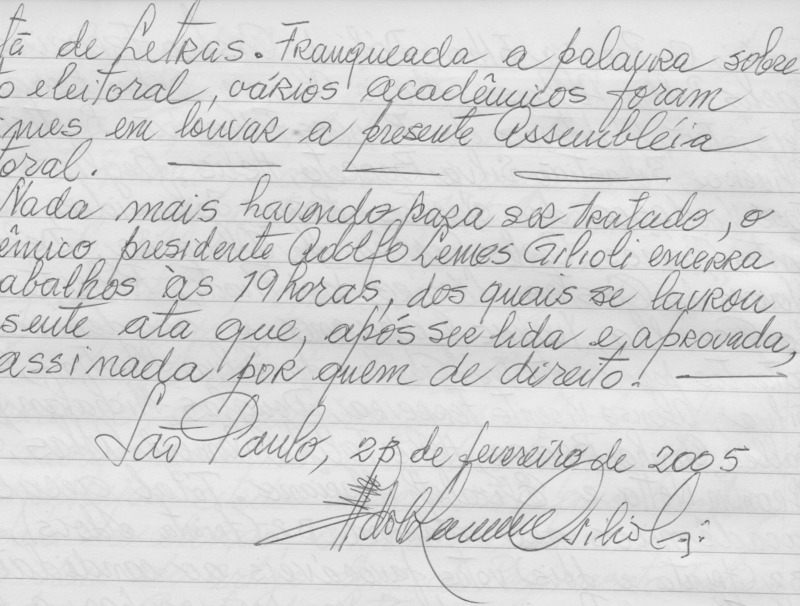 tã de Letras. Franqueada a palavra sobre
o eleitoral, vários acadêmicos foram
mes em louvar a presente Assembléia
toral.
Nada mais havendo para ser tratado, o
êmico presidente Adolfo Lemes Gilioli encerra
abalhos às 19 horas, dos quais se lavrou
sente ata que, após ser lida e aprovada,
assinada por quem de direito.
São Paulo, de fevereiro de 2005